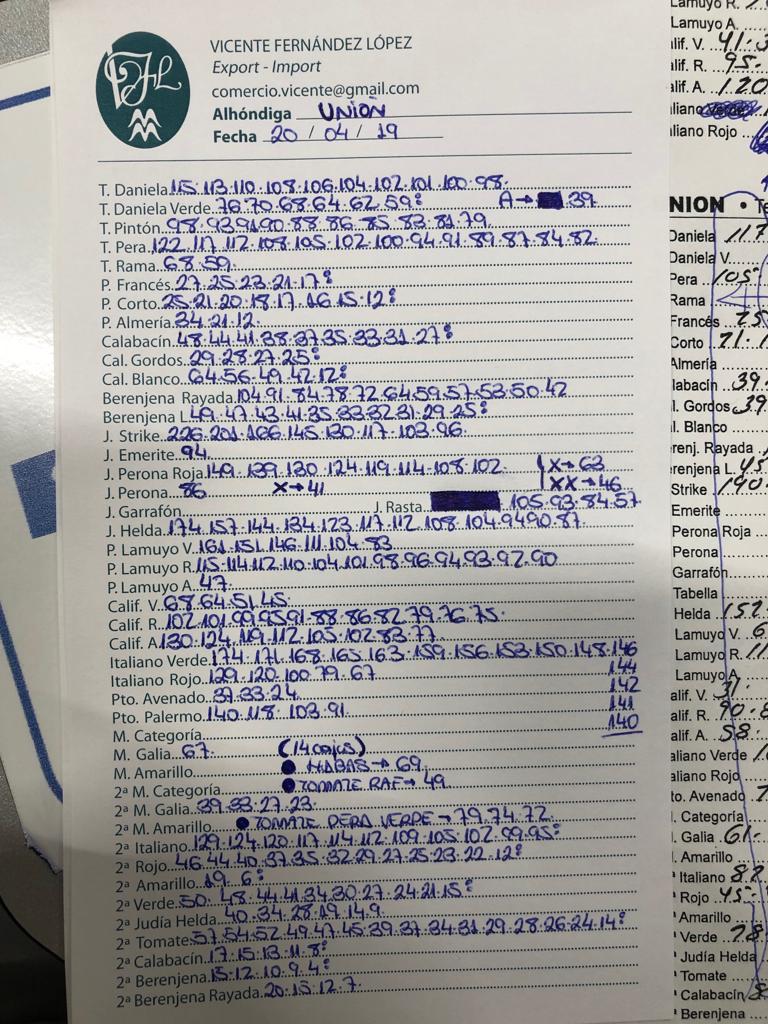 VICENTE FERNÁNDEZ LÓPEZ
Export - Import
comercio.vicente@gmail.com
Alhóndiga UNION
Fecha 20 / 04 / 19
T. Daniela 115.113.110.108.106.104.102.101.100.98.
T. Daniela Verde 76.70.68.64.62.59 A→ 39
T. Pintón 98.93.91.90.88.86.85.83.81.79
T. Pera 122.117.112.108.105.102.100.94.91.89.87.84.82
T. Rama 68.59
P. Francés 27.25.23.21.17
P. Corto 25.21.20.18.17.16.15.12
P. Almería 34.21.12
Calabacín 48.44.41.38.37.35.33.31.27
Cal. Gordos 29.28.27.25
Cal. Blanco 64.56.49.42.12
Berenjena Rayada 104.91.84.78.72.64.59.57.53.50.42
Berenjena L 49.47.43.41.35.33.32.31.29.25
J. Strike 226.201.166.145.130.117.103.96
J. Emerite 94
J. Perona Roja 149.139.130.124.119.114.108.102 X→63
J. Perona 86 X→41 XX→46
J. Garrafón J. Rasta 105.93.84.57
J. Helda 174.157.144.134.123.117.112.108.104.94.90.87
P. Lamuyo V. 161.151.146.111.104.83
P. Lamuyo R. 115.114.112.110.104.101.98.96.94.93.92.90
P. Lamuyo A. 47
Calif. V. 68.64.51.45
Calif. R. 102.101.99.95.91.88.86.82.79.76.75
Calif. A 130.124.119.112.105.102.83.77
Italiano Verde 174.171.168.165.163.159.156.153.150.148.146
Italiano Rojo 129.120.100.79.67 144
Pto. Avenado 37.33.24 142
Pto. Palermo 140.118.103.91 141
M. Categoría 140
M. Galia 67 (14 cajas)
M. Amarillo HABAS→69
2ª M. Categoría TOMATE RAF→49
2ª M. Galia 39.33.27.23
2ª M. Amarillo TOMATE PERA VERDE→79.74.72
2ª Italiano 129.124.120.117.114.112.109.105.102.99.95
2ª Rojo 46.44.40.37.35.32.29.27.25.23.22.12
2ª Amarillo 19.6
2ª Verde 50.48.44.41.34.30.27.24.21.15
2ª Judía Helda 40.34.28.19.14.9
2ª Tomate 57.54.52.49.47.45.39.37.34.31.29.28.26.24.14
2ª Calabacín 17.15.13.11.8
2ª Berenjena 15.12.10.9.4
2ª Berenjena Rayada 20.15.12.7
Lamuyo R.
Lamuyo A.
alif. V. 41.
alif. R. 95.
alif. A. 120
aliano
aliano Rojo
NION •
Daniela 117
Daniela V.
Pera 105
Rama
Francés 25
Corto 21.
Almería
labacín 39.
l. Gordos 39
l. Blanco
erenj. Rayada
erenjena L. 45
Strike 190
Emerite
Perona Roja
Perona
Garrafón
Tabella
Helda 152
Lamuyo V. 6
Lamuyo R. 11
Lamuyo A.
alif. V. 31.
alif. R. 90.8
alif. A. 58.
aliano Verde
aliano Rojo
to. Avenado
. Categoría
. Galia 61.
. Amarillo
Italiano 82
Rojo 45
Amarillo
Verde 28
Judía Helda
Tomate
Calabacín
Berenjena